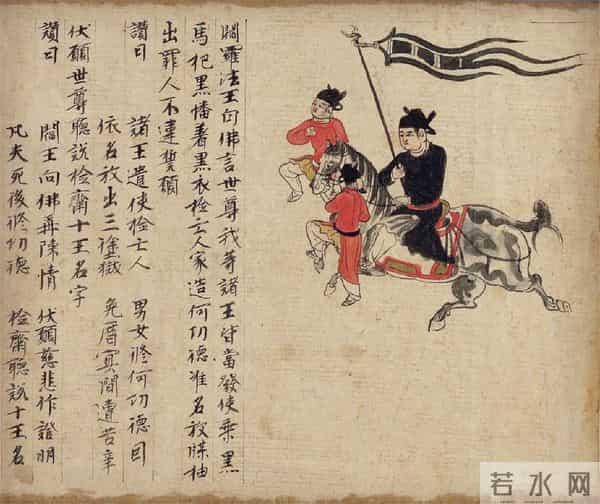 閻羅法王白佛言世尊我等諸王皆當發使乘黑
馬把黑幡著黑衣檢亡人家造何功德准名放牒抽
出罪人不違誓願
讚曰　諸王遣使檢亡人　男女修何功德因
依名放出三塗獄　免曆冥間遭苦辛
伏願世尊聽說檢齋十王名字
讚曰　閻王向佛再陳情　伏願慈悲作證明
凡夫死後修功德　檢齋聽說十王名
若水网